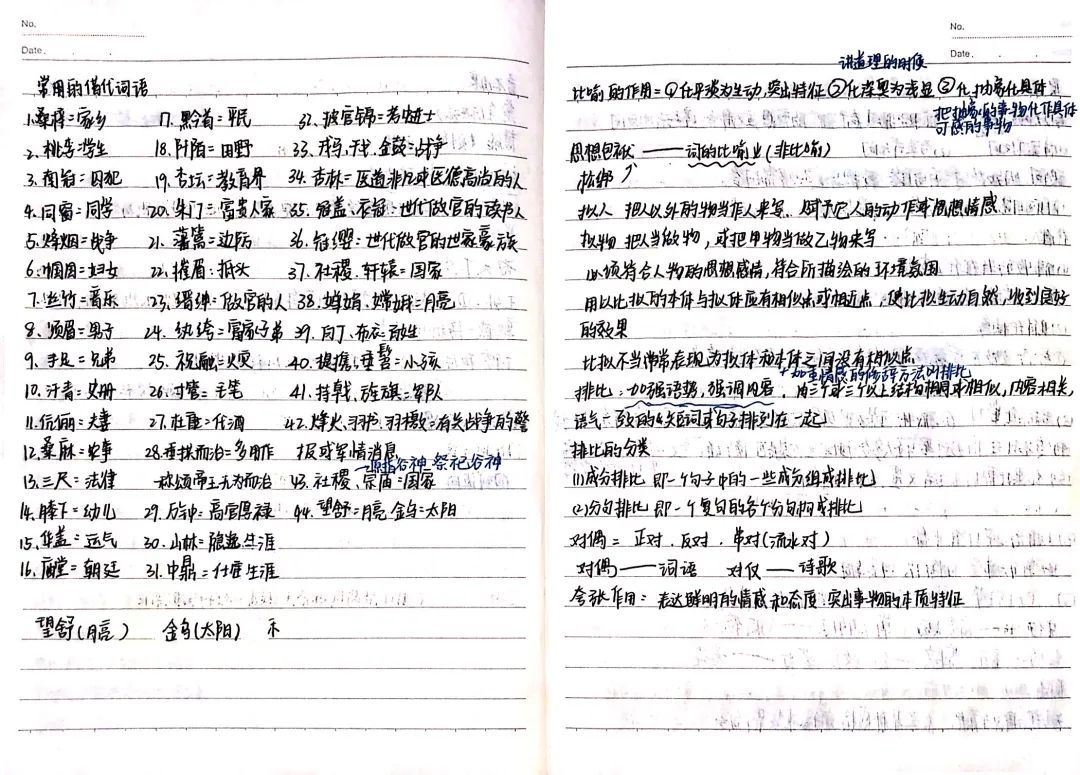 No.
Date.
常用的借代词语
1.桑梓=家乡
2.桃李=学生
3.南冠=囚犯
4.同窗=同学
5.烽烟=战争
6.巾帼=妇女
7.丝竹=音乐
8.须眉=男子
9.手足=兄弟
10.汗青=史册
11.伉俪=夫妻
12.桑麻=农事
13.三尺=法律
14.膝下=幼儿
15.华盖=运气
16.庙堂=朝廷
17.黔首=平民
18.阡陌=田野
19.杏坛=教育界
20.朱门=富贵人家
21.藩篱=边防
22.摧眉=低头
23.缙绅=做官的人
24.纨绔=富家子弟
25.祝融=火灾
26.寸管=毛笔
27.杜康=代酒
28.垂拱而治=多用作
称颂帝王无为而治
29.万钟=高官厚禄
30.山林=隐逸生涯
31.中鼎=仕宦生涯
32.披宫锦=考中进士
33.戎马、干戈、金鼓=战争
34.杏林=医道非凡或医德高尚的人
35.冠盖、衣冠=世代做官的读书人
36.冠缨=世代做官的世家豪族
37.社稷、轩辕=国家
38.婵娟、嫦娥=月亮
39.白丁、布衣=
40.提携、垂髫=小孩
41.持戟、旌旗=军队
42.烽火、羽书、羽檄=有关战争的警
报或军情消息
→原指谷神 祭祀谷神
43.社稷、宗庙=国家
44.望舒=月亮 金乌=太阳
望舒(月亮) 金乌(太阳)
No.
Date.
讲道理的时候
比喻的作用=①化平淡为生动,突出特征②化深奥为浅显③化抽象化具体
把抽象的事物化作具体
可感的事物
思想包袱——词的比喻业(非比喻)
拟人 把人以外的物当作人来写.赋予它人的动作或思想情感
拟物 把人当做物,或把甲物当做乙物来写
必须符合人物的思想感情,符合所描绘的环境氛围
用以比拟的本体与拟体应有相似点或相近点.使比拟生动自然,收到良好
的效果
比拟不当常常表现为拟体和本体之间没有相似点
+加重情感的修辞方法叫排比
排比:加强语势,强调内容.由三个或三个以上结构相同或相似,内容相关,
语气一致的短词或句子排列在一起
排比的分类
(1)成分排比 即一个句子中的一些成分组成排比
(2)分句排比 即一个复句的各个分句构成排比
对偶= 正对、反对、串对(流水对)
对偶——词语 对仗——诗歌
夸张作用= 表达鲜明的情感和态度.突出事物的本质特征